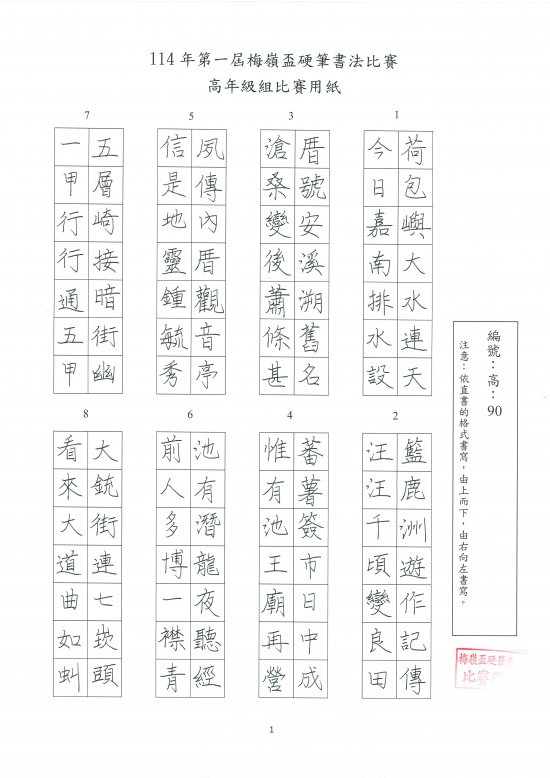 114年第一屆梅嶺盃硬筆書法比賽
高年級組比賽用紙
1
荷包嶼大水連天
今日嘉南排水設
2
籃鹿洲遊作記傳
汪汪千頃變良田
3
厝號安溪溯舊名
滄桑變後蕭條甚
4
蕃薯簽市日中成
惟有池王廟再營
5
夙傳內厝觀音亭
信是地靈鍾毓秀
6
池有潛龍夜聽經
前人多博一襟青
7
五層崎接暗街幽
一甲行行通五甲
8
大銃街連七崁頭
看來大道曲如虯
編號：高：90
注意：依直書的格式書寫，由上而下，由右向左書寫。
梅嶺盃硬筆書
比賽用
1